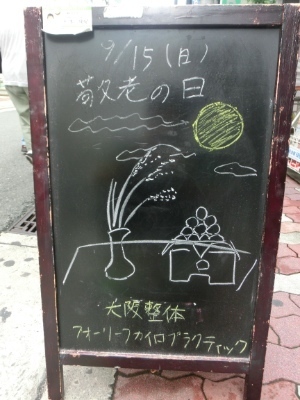 9/15(日)
敬老の日
大阪整体
フォーリーフカイロプラクティック